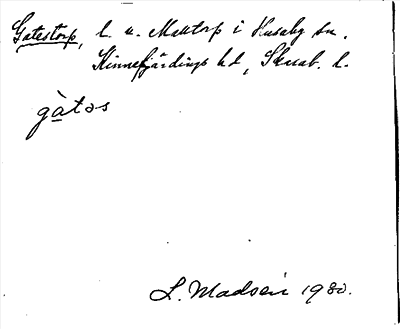 Gatestorp, l. u. Mattorp i Husaby sn.
Kinnefjärdings hd, Skarab. l.
gàtəs
L. Madsen 1980.